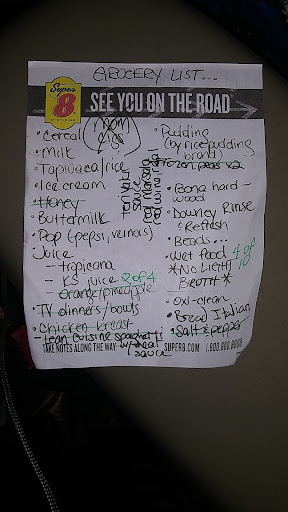 GROCERY LIST...
Super
8
SEE YOU ON THE ROAD
• Cereal
• Milk
• Tapiuaca/rice
• Ice cream
• Honey
• Buttermilk
• Pop (pepsi, vernors)
Juice
— tropicana
— KS juice 2 of 4
— Orange/pineapple
• TV dinners/bowls
• Chicken breast
— Lean Cuisine spaghetti
w/meat
sauce
teriyaki
sauce
red marsala
red wine
• Pudding
(by rice pudding
brand)
frozen peas x2
• Bona hard-
wood
• Downey Rinse
& Refresh
• Beads...
• Wet food 4 of
10
* NO LIGHT
BROTH *
• Oxi-clean
• Bread Italian
• Salt & pepper
TAKE NOTES ALONG THE WAY.
SUPER8.COM
1.800.800.8000